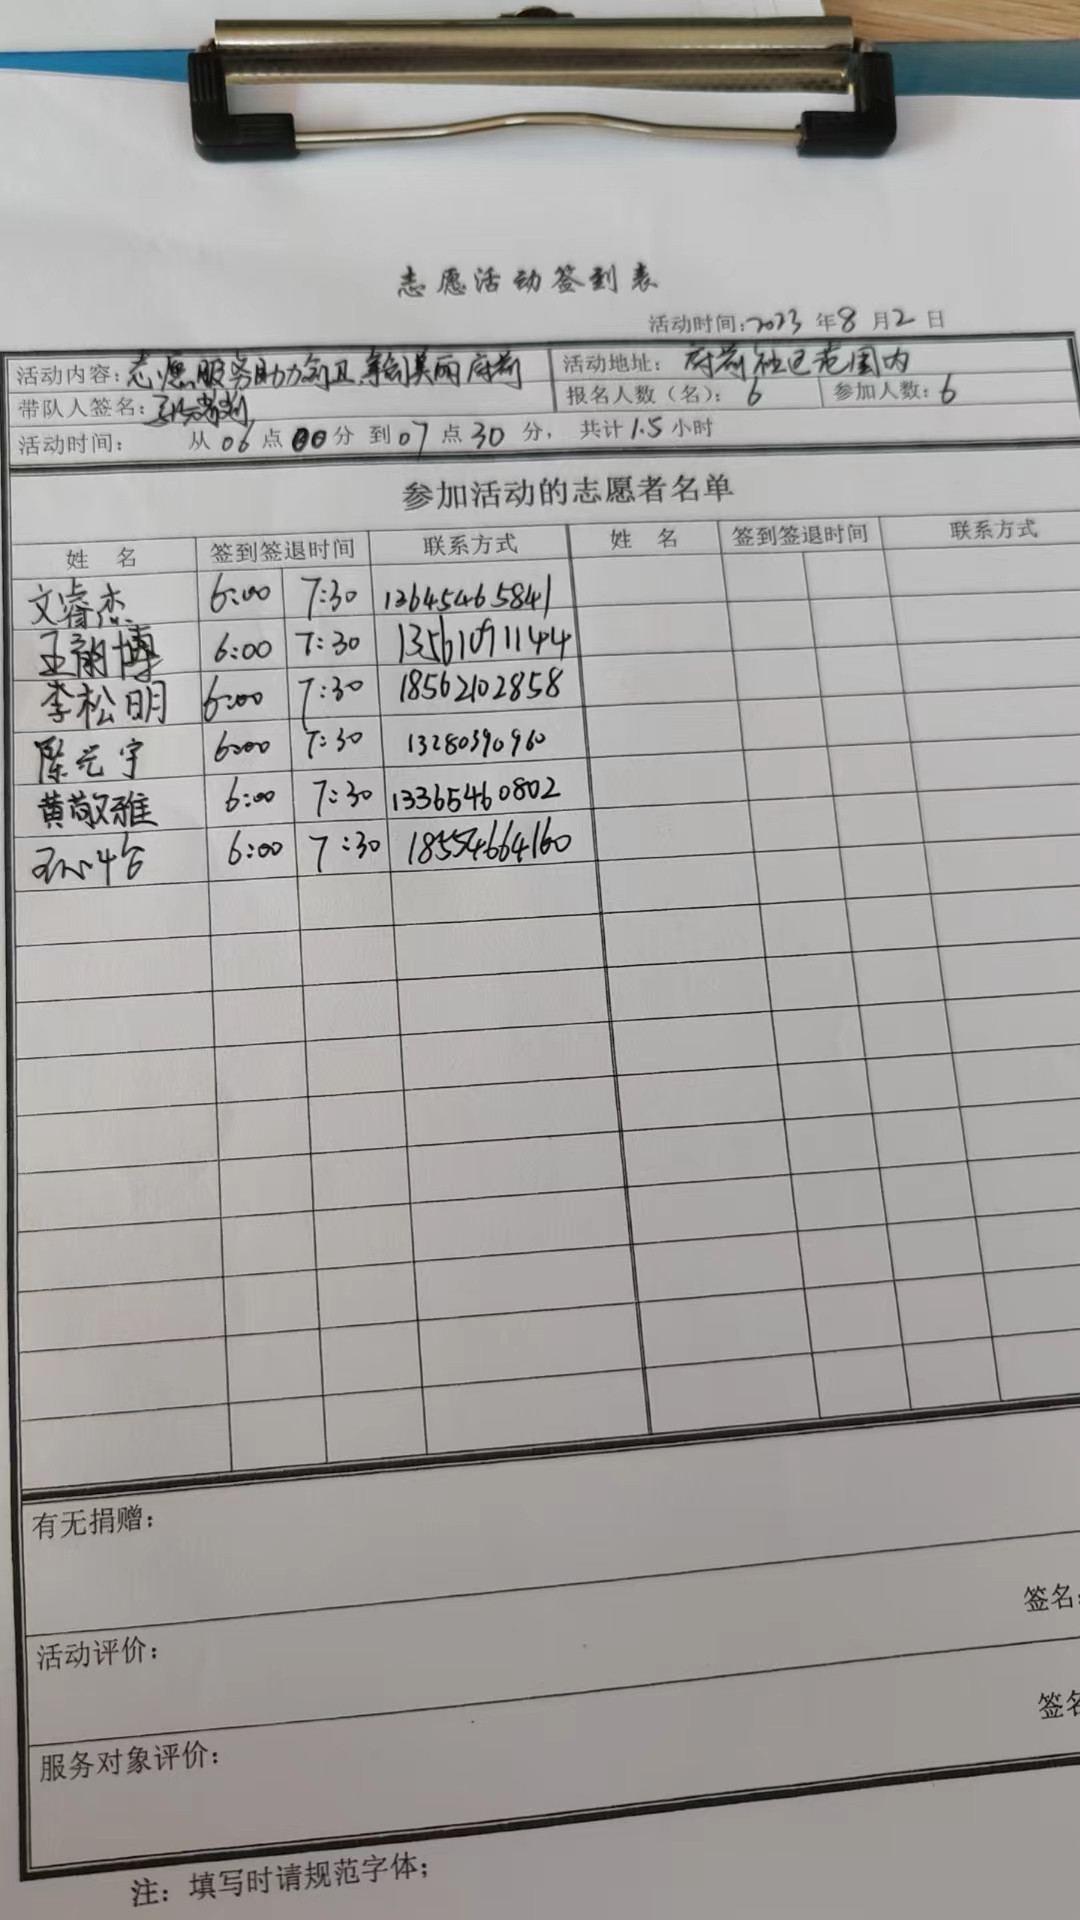 志愿活动签到表
活动时间:2023年8月2日
活动内容:志愿服务助力创卫 美丽府前 活动地址:府前社区范围内
带队人签名: 报名人数(名):6 参加人数:6
活动时间: 从06点00分到07点30分,共计1.5小时
参加活动的志愿者名单
姓 名 签到签退时间 联系方式 姓 名 签到签退时间 联系方式
文睿杰 6:00 7:30 12645465841
王韵博 6:00 7:30 13561091144
李松明 6:00 7:30 18562102858
陈艺宇 6:00 7:30 13280390960
黄敬雅 6:00 7:30 13365460802
6:00 7:30 18554664160
有无捐赠:
签名:
活动评价:
签名
服务对象评价:
注:填写时请规范字体;